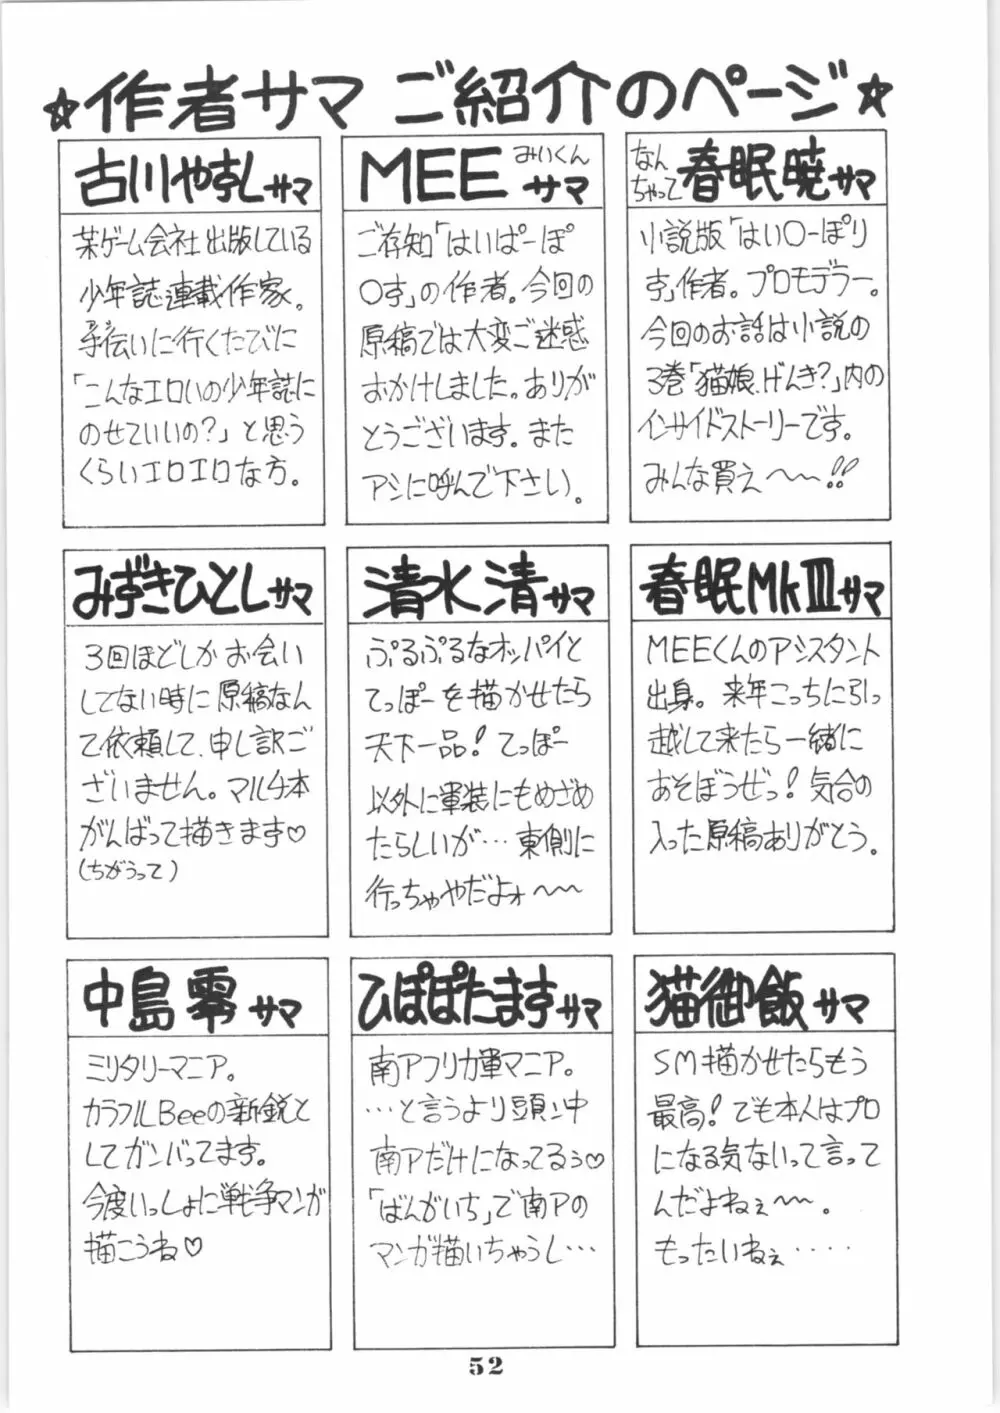 ☆作者サマ ご紹介のページ☆
古川やすしサマ
某ゲーム会社出版している
少年誌連載作家。
アシ
手伝いに行くたびに
「こんなエロいの少年誌に
のせていいの?」と思う
くらいエロエロな方。
MEE みいくん サマ
ご存知「はいぱーぽ
〇す」の作者。今回の
原稿では大変ご迷惑
おかけしました。ありが
とうございます。また
アシに呼んで下さい。
なんちゃって 春眠暁サマ
小説版「はい〇ーぽり
す」作者。プロモデラー。
今回のお話は小説の
3巻「猫娘、げんき?」内の
インサイドストーリーです。
みんな買え〜〜!!
みずきひとしサマ
3回ほどしかお会い
してない時に原稿なん
て依頼して、申し訳ご
ざいません。マルチ本
がんばって描きます♡
(ちがうって)
清水清サマ
ぷるぷるなオッパイと
てっぽーを描かせたら
天下一品! てっぽー
以外に軍装にもめざめ
たらしいが…東側に
行っちゃやだよォ〜〜
春眠MkⅢサマ
MEEくんのアシスタント
出身。来年こっちに引っ
越して来たら一緒に
あそぼうぜっ! 気合の
入った原稿ありがとう。
中島零サマ
ミリタリーマニア。
カラフルBeeの新鋭と
してガンバってます。
今度いっしょに戦争マンガ
描こうね♡
ひぽぽたますサマ
南アフリカ軍マニア。
…と言うより頭ン中
南アだけになってるぅ♡
「ばんがいち」で南アの
マンガ描いちゃうし…
猫御飯サマ
SM描かせたらもう
最高! でも本人はプロ
になる気ないって言って
んだよねぇ〜〜。
もったいねぇ‥‥
52